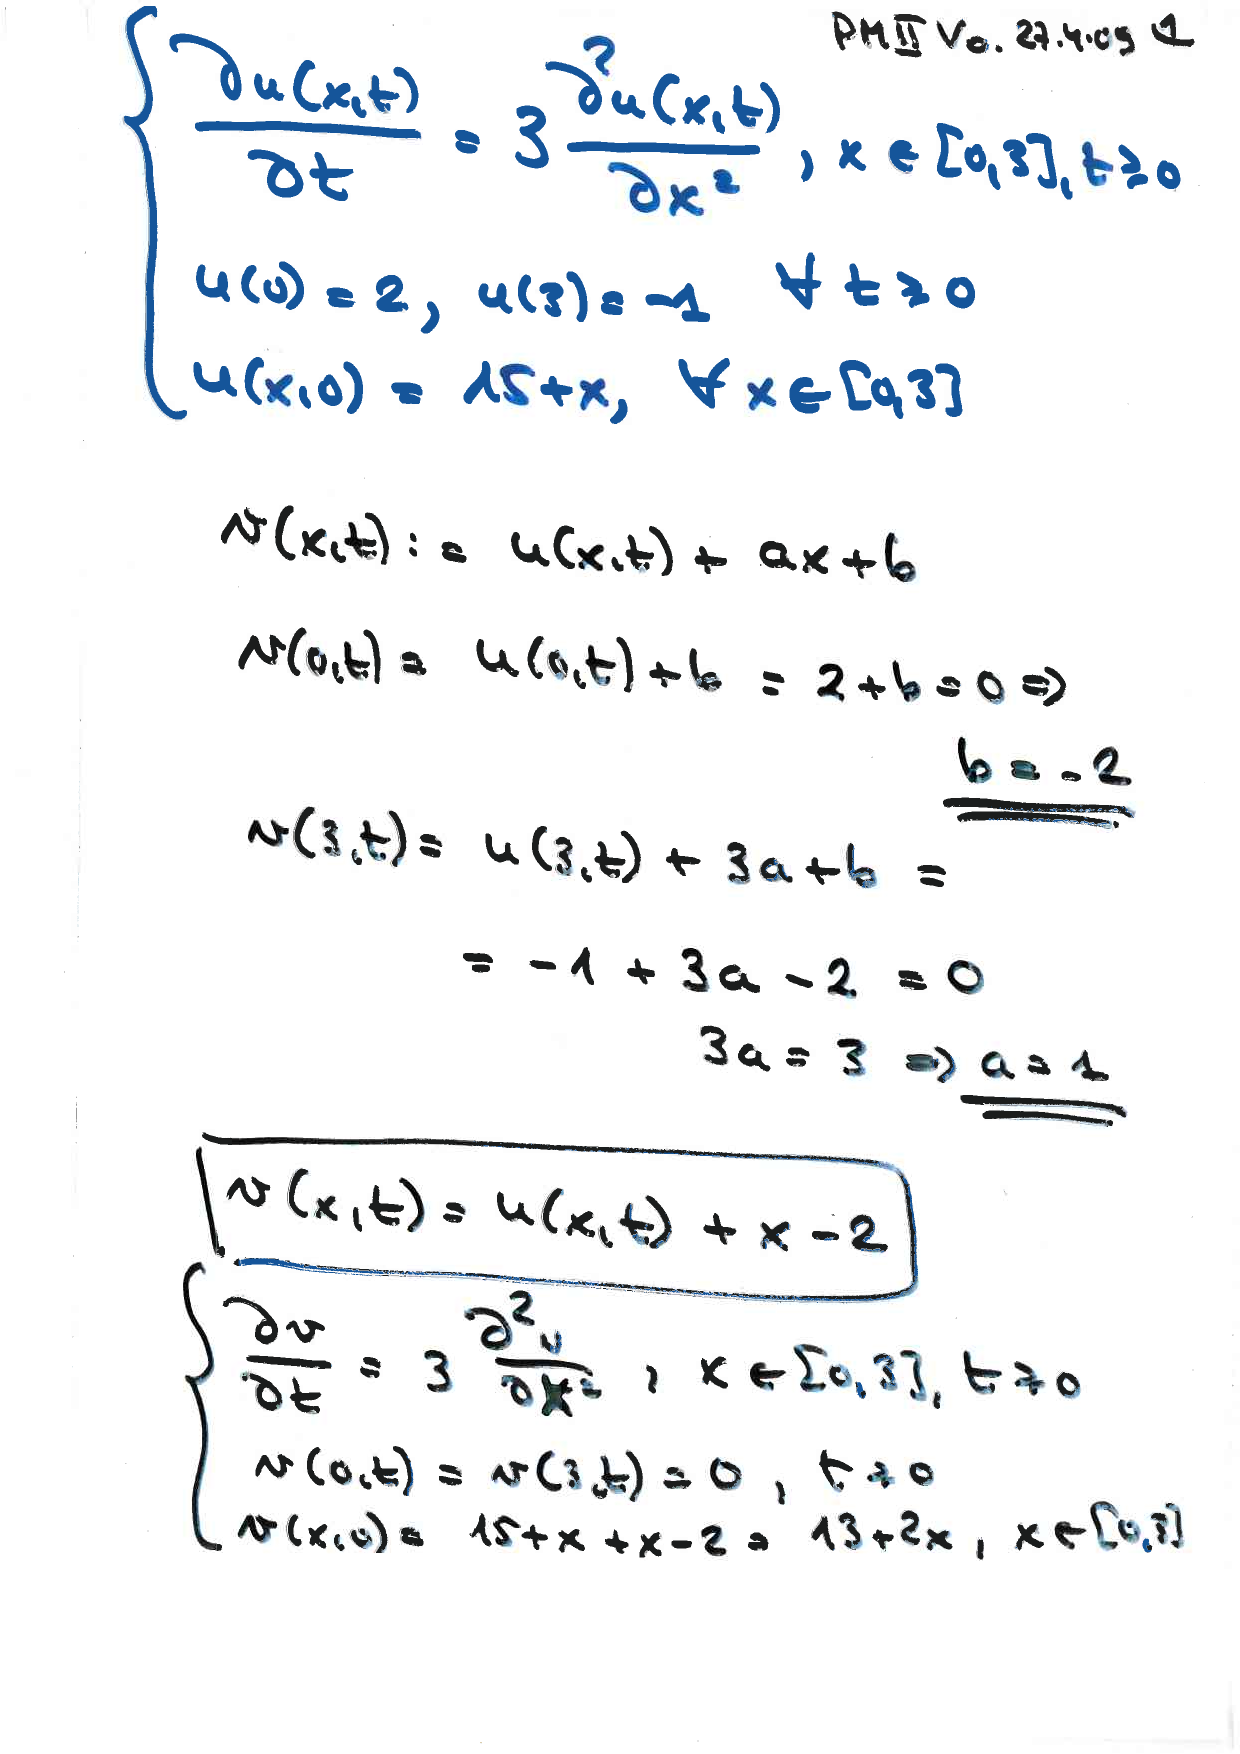 PM II Vo. 27.4.09 1
∂u(x,t)/∂t = 3 ∂²u(x,t)/∂x², x ∈ [0,3], t ≥ 0
u(0) = 2, u(3) = -1 ∀ t ≥ 0
u(x,0) = 15+x, ∀ x ∈ [0,3]
v(x,t) := u(x,t) + ax + b
v(0,t) = u(0,t) + b = 2 + b = 0 ⇒
b = -2
v(3,t) = u(3,t) + 3a + b =
= -1 + 3a - 2 = 0
3a = 3 ⇒ a = 1
v(x,t) = u(x,t) + x - 2
∂v/∂t = 3 ∂²v/∂x², x ∈ [0,3], t ≥ 0
v(0,t) = v(3,t) = 0, t ≥ 0
v(x,0) = 15+x + x-2 = 13+2x, x ∈ [0,3]